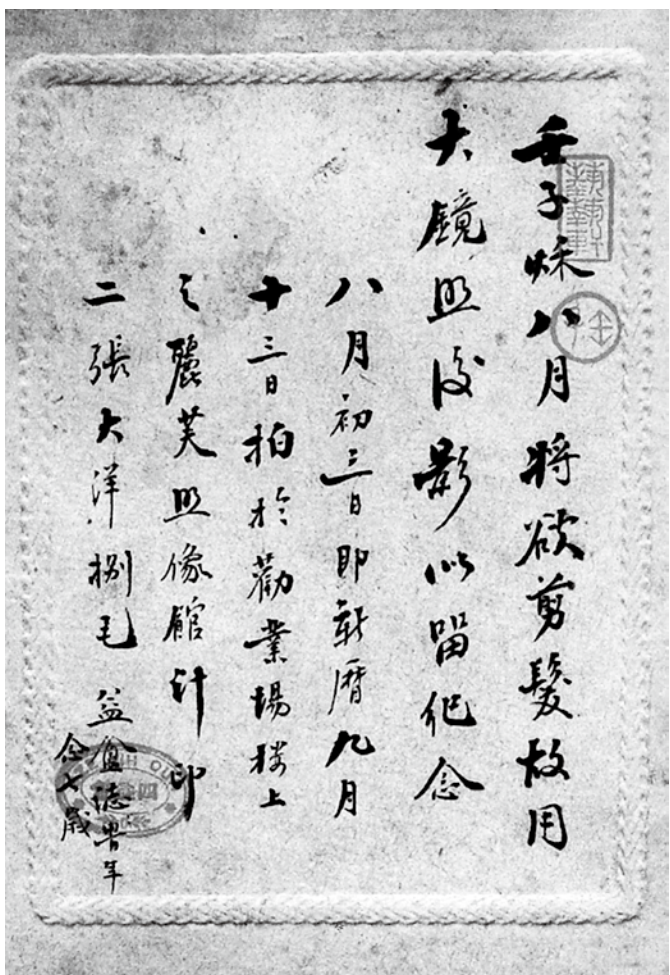 壬子秌八月将欲剪髮故用
大鏡照後影以留紀念
八月初三日即新曆九月
十三日拍於勸業場楼上
之麗芙照像館計印
二張大洋捌毛 益 德 年
念七歲